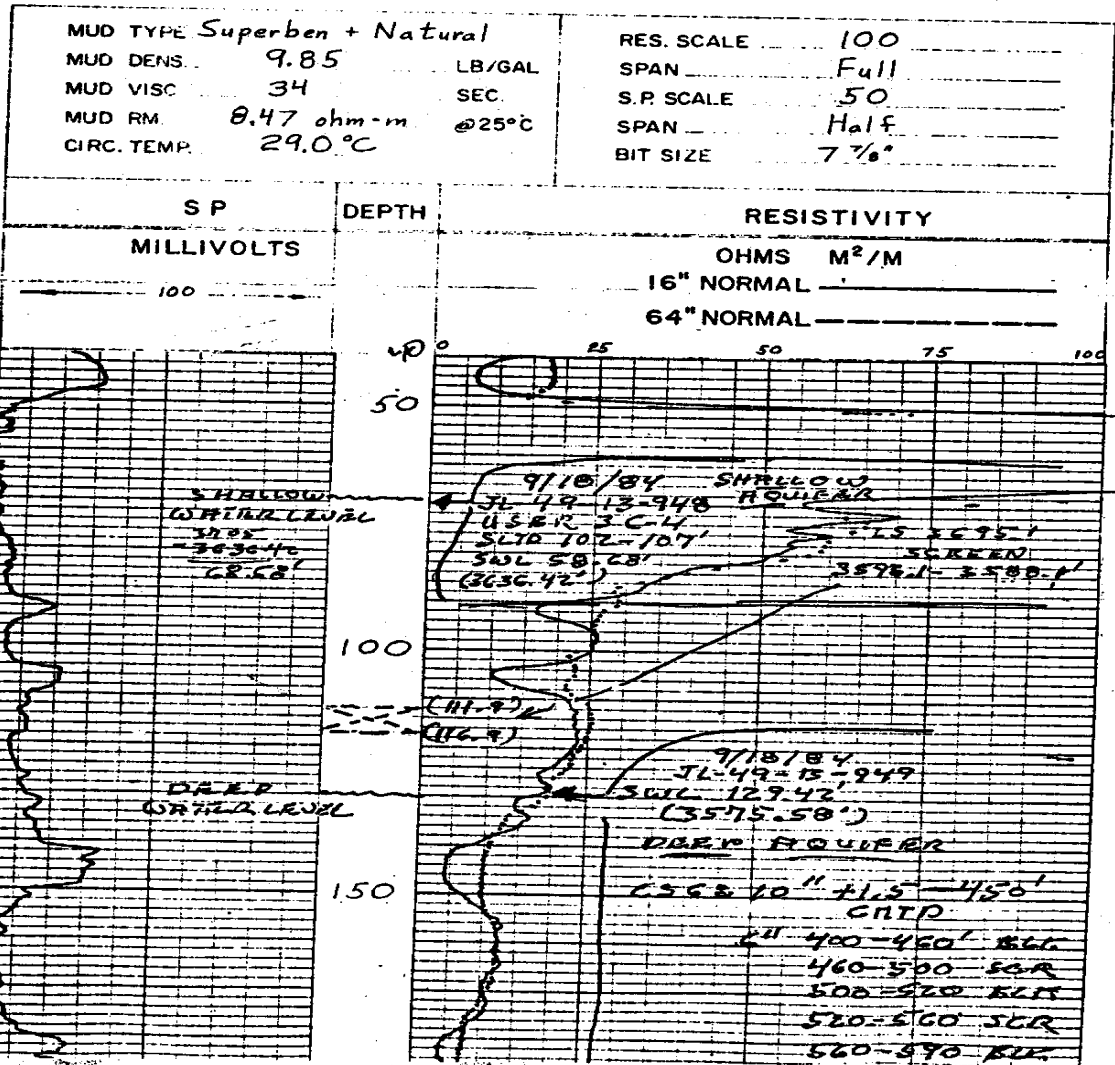 MUD TYPE Superben + Natural
MUD DENS. 9.85 LB/GAL
MUD VISC 34 SEC.
MUD RM. 8.47 ohm-m @25°C
CIRC. TEMP. 29.0 °C
RES. SCALE 100
SPAN Full
S.P. SCALE 50
SPAN Half
BIT SIZE 7 7/8"
SP DEPTH RESISTIVITY
MILLIVOLTS
100
OHMS M²/M
16" NORMAL
64" NORMAL
40 0 25 50 75 100
50
SHALLOW
WATER LEVEL
3705
-3636.42
68.58'
9/18/84 SHALLOW
AQUIFER
JL-49-13-948
USBR 3C-4
SLTD 102-107'
SWL 58.68'
(3636.42')
LS 3695.1
SCREEN
3593.1-3588.1'
100
(111.9)
(116.9)
DEEP
WATER LEVEL
9/18/84
JL-49-13-949
SWL 129.42'
(3575.58')
DEEP AQUIFER
150
CSGS 10" +1.5-450'
CMTD
6" 400-460' BLK
460-500 SCR
500-520 BLK
520-560 SCR
560-590 BLK